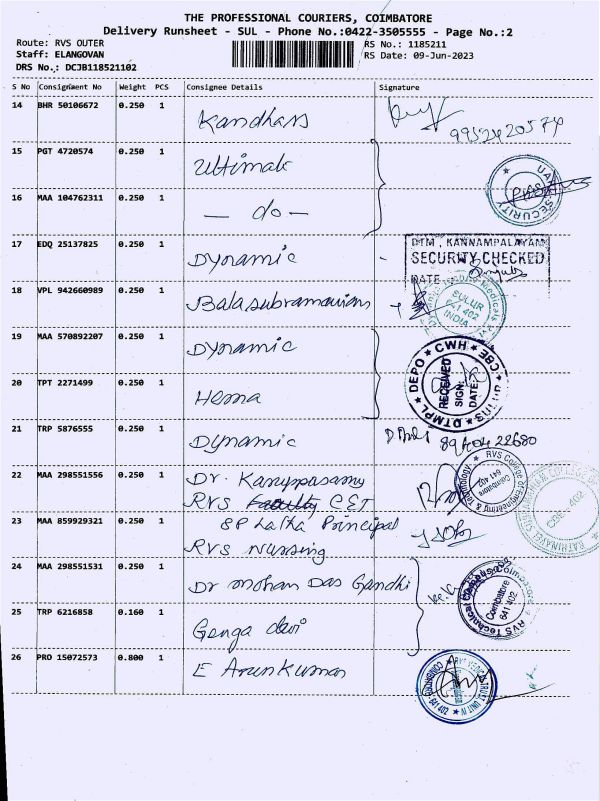 THE PROFESSIONAL COURIERS, COIMBATORE
Delivery Runsheet - SUL - Phone No.:0422-3505555 - Page No.:2
Route: RVS OUTER
RS No.: 1185211
Staff: ELANGOVAN
RS Date: 09-Jun-2023
DRS No.: DCJB118521102
S No Consignment No Weight PCS Consignee Details Signature
14 BHR 50106672 0.250 1 Kandhass 9952420574
15 PGT 4720574 0.250 1 Ultimate
SECURITY
16 MAA 104762311 0.250 1 — do —
17 EDQ 25137825 0.250 1 Dynamic
DTM, KANNAMPALAYAM
SECURITY CHECKED
DATE
18 VPL 942660989 0.250 1 Balasubramanians
SULUR
641 402
INDIA
19 MAA 570892207 0.250 1 Dynamic
DEPO ★ CWH ★ CBE ★ DTMPL
RECEIVED
SIGN:
DATE:
20 TPT 2271499 0.250 1 Hema
21 TRP 5876555 0.250 1 Dynamic
22 MAA 298551556 0.250 1 Dr. Karuppasamy
RVS Faculty CET
RVS College of Engineering & Technology
Coimbatore
641 402
23 MAA 859929321 0.250 1 SP Latha Principal
RVS Nursing
24 MAA 298551531 0.250 1 Dr mohan Das Gandhi
RVS Technical
Coimbatore
641 402
25 TRP 6216858 0.160 1 Genga devi
26 PRO 15072573 0.800 1 E Arunkumar